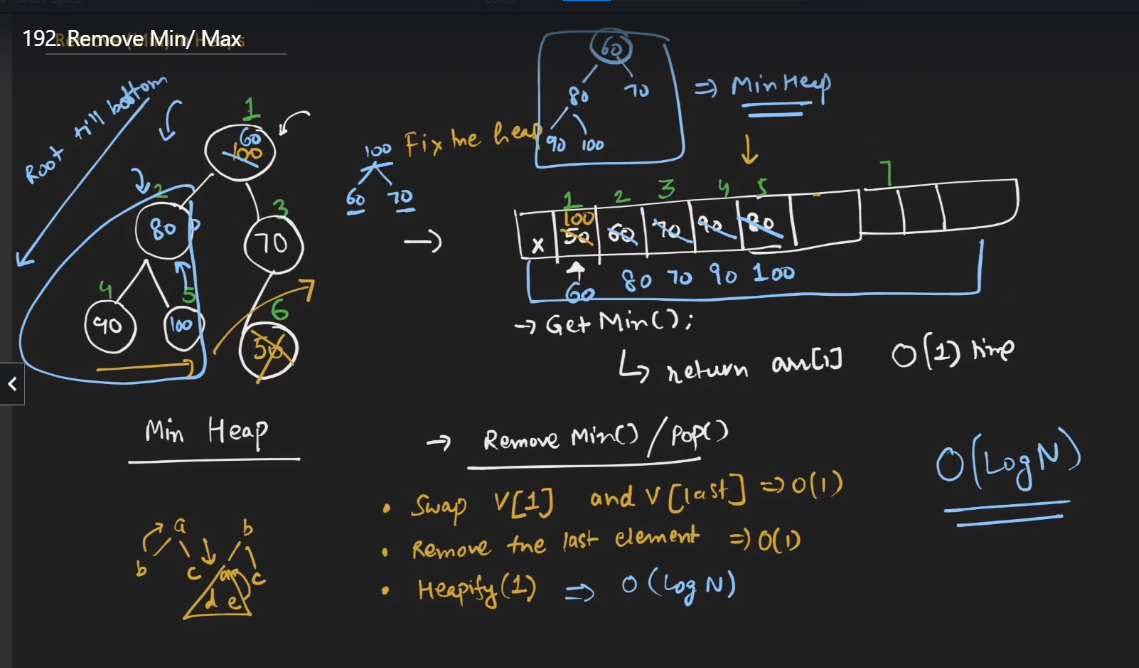 192. Remove Min/ Max
Root till bottom
1
60
100
2
80
3
70
4
90
5
100
6
50
100
60 70
Fix the heap
60
80 70
90 100
⇒ Min Heap
1 2 3 4 5 7
100
x 50 60 70 90 80
60 80 70 90 100
→ Get Min();
↳ return arr[1] O(1) time
Min Heap
→ Remove Min() / Pop()
O(Log N)
• Swap V[1] and V[last] ⇒ O(1)
• Remove the last element ⇒ O(1)
• Heapify(1) ⇒ O(Log N)
a b
b c c
d e